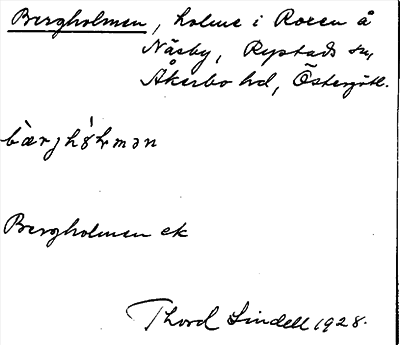 Bergholmen, holme i Roxen å
Näsby, Rystads sn,
Åkerbo hd, Östergötl.
bærjhólmən
Bergholmen ek
Thord Lindell 1928.